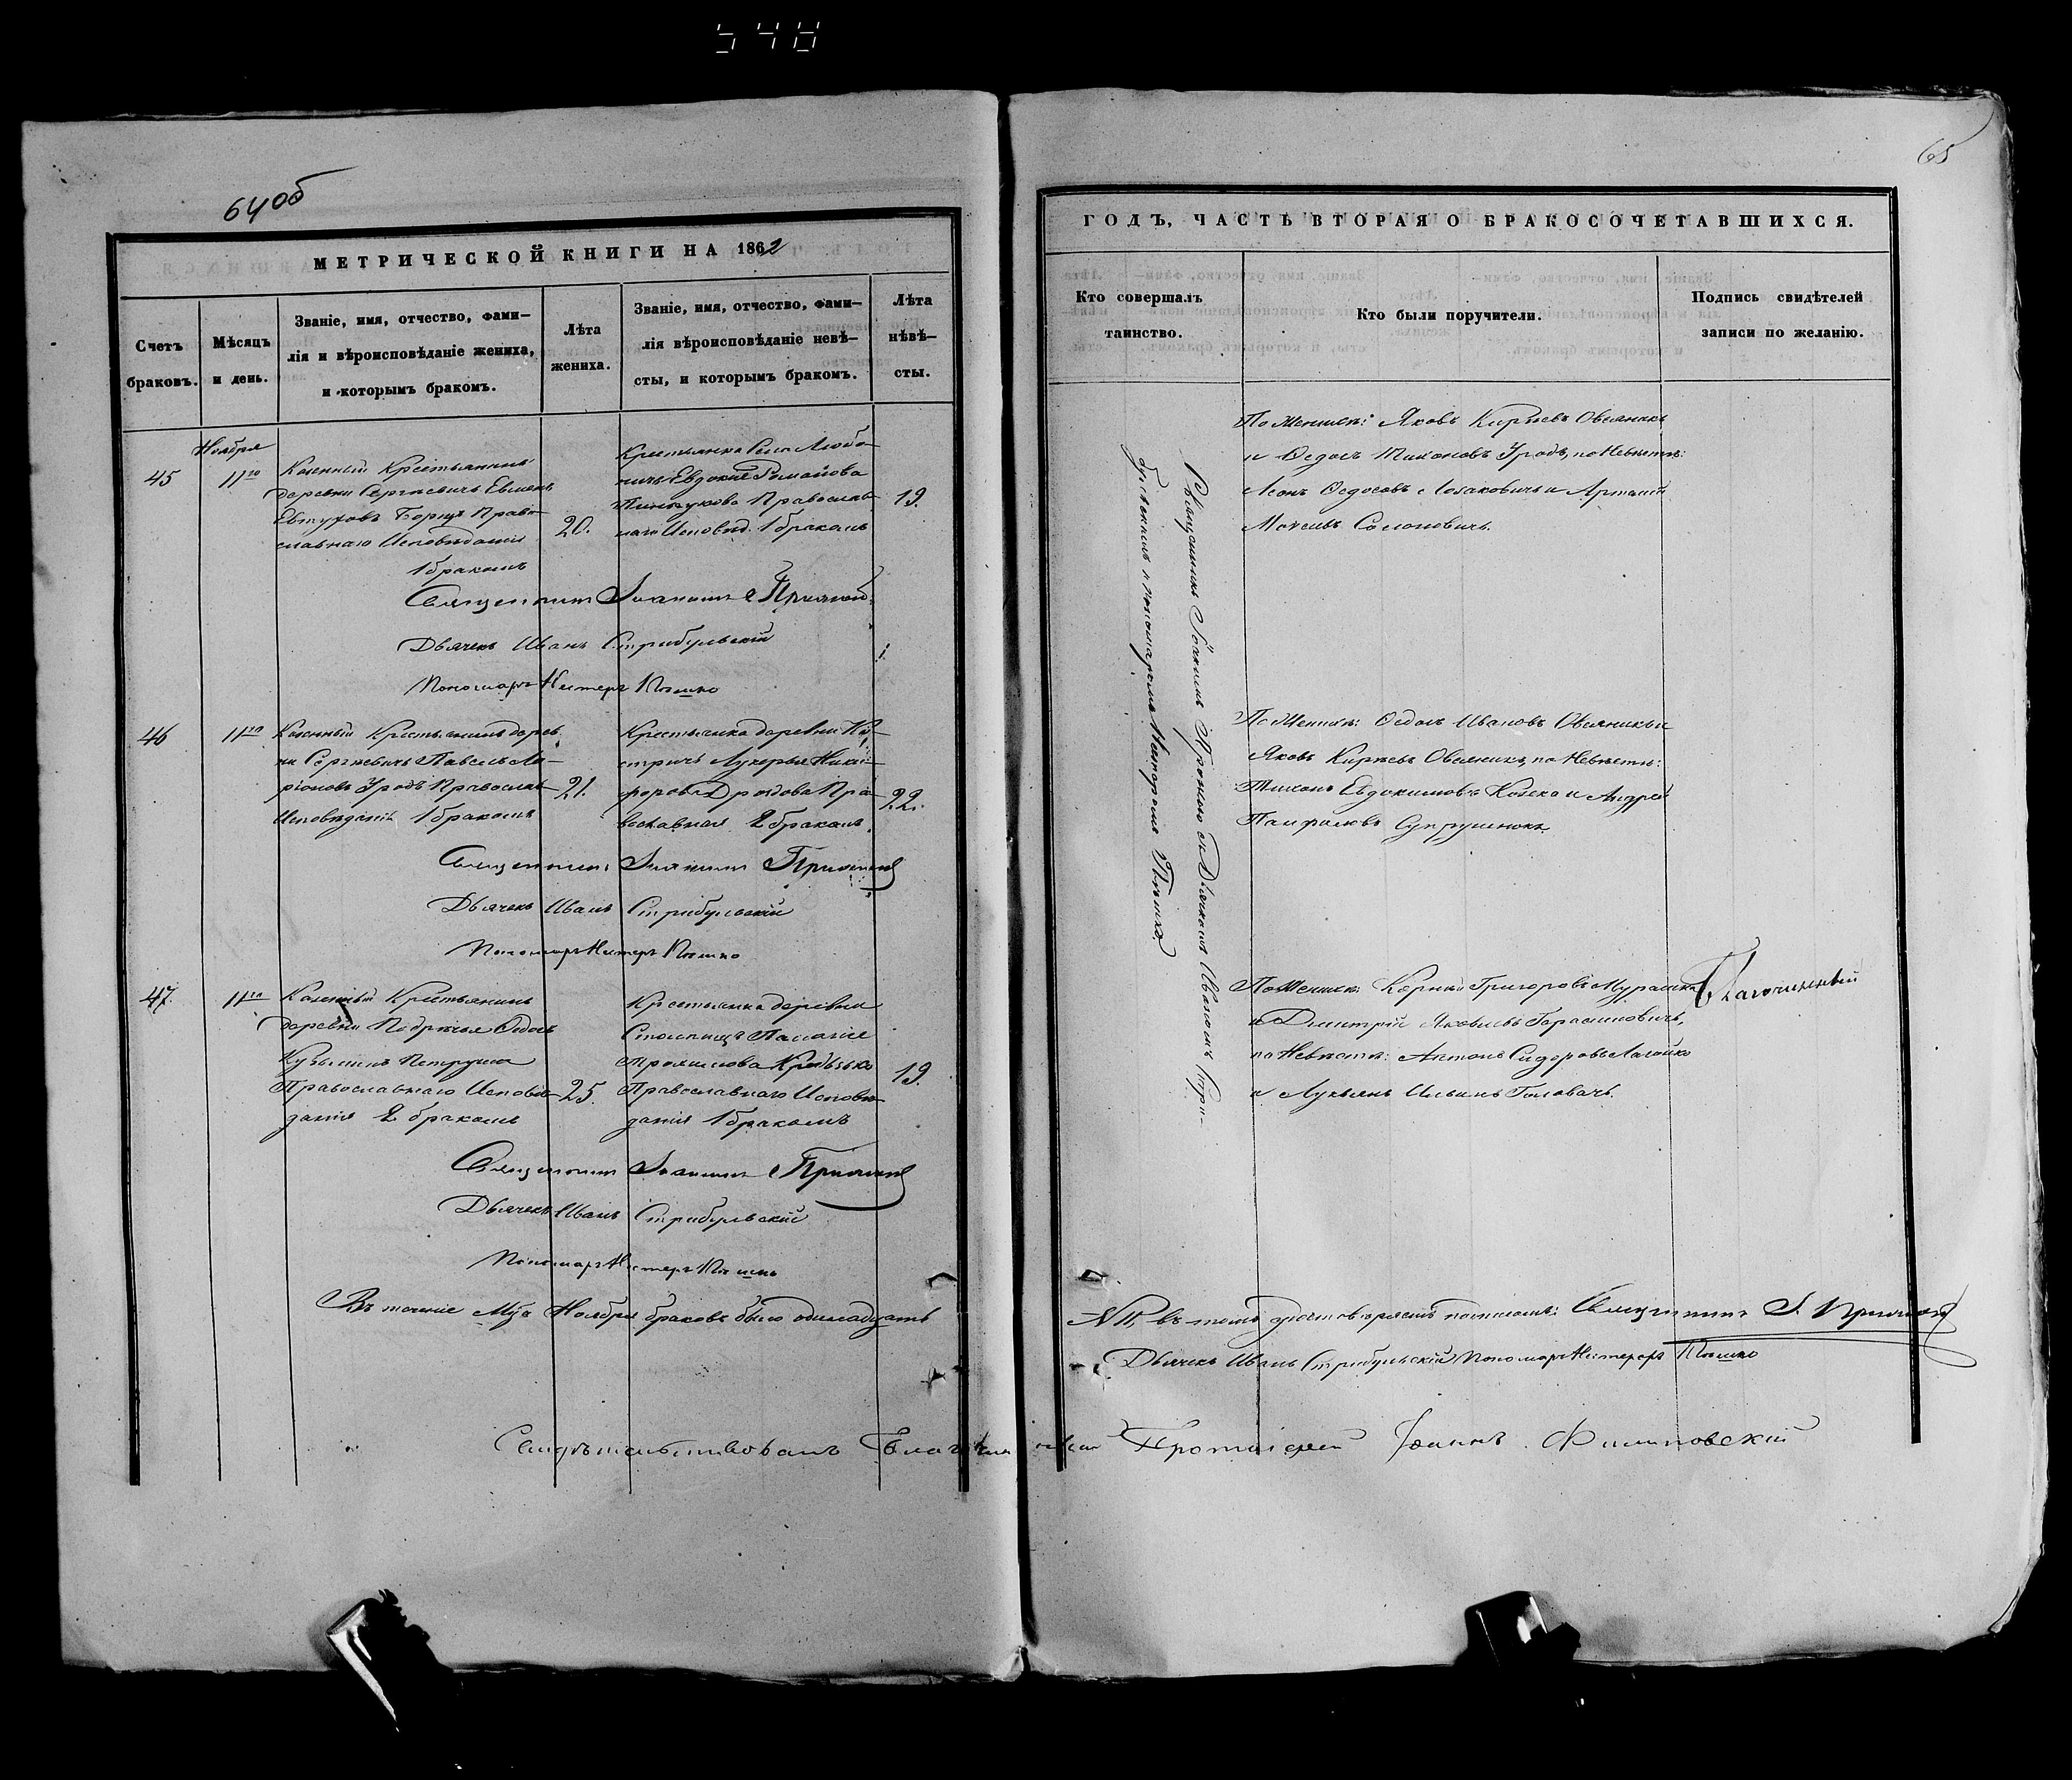 548
64об
МЕТРИЧЕСКОЙ КНИГИ НА 1862
Счетъ
браковъ.
Мѣсяцъ
и день.
Званіе, имя, отчество, фами–
лія и вѣроисповѣданіе жениха,
и которымъ бракомъ.
Лѣта
жениха.
Званіе, имя, отчество, фами–
лія вѣроисповѣданіе невѣ–
сты, и которымъ бракомъ.
Лѣта
нѣвѣ–
сты.
Ноября
45
11го
Казенный Крестьянинъ
деревни Сергѣевичъ
Евтуховъ Борщъ Право-
славнаго Исповѣданія
1 бракомъ
20.
Крестьянка Села Любо-
ничъ Евдокія Романова
Православ-
наго Исповѣд. 1 бракомъ
19.
Священникъ Іоаннъ
Дьячекъ Иванъ Стрибульскій
Пономарь Нестеръ Пышко
46
11го
Казенный Крестьянинъ дерев-
ни Сергѣевичъ Павелъ Ла-
ріоновъ Уродъ Православ-
Исповѣданія 1 бракомъ
21.
Крестьянка деревни Ко-
стричъ Лукерья Ники-
форова Дроздова Пра-
вославная 2 бракомъ
22.
Священникъ Іоаннъ
Дьячекъ Иванъ Стрибульскій
Пономарь Нестеръ Пышко
47.
11го
Казенный Крестьянинъ
деревни Подрѣчья Федоръ
Кузьминъ Петруша
Православнаго Исповѣ-
данія 2 бракомъ
25.
Крестьянка деревни
Столпищъ
Православнаго Исповѣ-
данія 1 бракомъ
19.
Священникъ Іоаннъ
Дьячекъ Иванъ Стрибульскій
Пономарь Нестеръ Пышко
Въ теченіе Мца Ноября браковъ было одинадцать
Свидѣтельствовалъ Благочинный Протоіерей Іоаннъ Филиповскій
65
ГОДЪ, ЧАСТЬ ВТОРАЯ О БРАКОСОЧЕТАВШИХСЯ.
Кто совершалъ
таинство.
Кто были поручители.
Подпись свидѣтелей
записи по желанію.
Священникъ съ Дьячкомъ Иваномъ Стри-
бульскимъ и пономаремъ Пышко.
По Женихѣ: Яковъ Кирѣевъ Овсяникъ
и Федоръ Тихоновъ Уродъ, по Невѣстѣ:
Леонъ Федосовъ и
Моисеевъ Соломовичъ.
По Женихѣ: Федоръ Ивановъ Овсяникъ и
Яковъ Кирѣевъ Овсяникъ, по Невѣстѣ:
Тихонъ Евдокимовъ и Андрей
Памфиловъ Супрунюкъ.
По Женихѣ: Корній Григоровъ Мурашка
и Димитрій Яковлевъ Герасимовичъ,
по Невѣстѣ: Антонъ Сидоровъ
и Лукьянъ Ильинъ Головачъ.
Благочинный
№ 11, въ томъ удостовѣряемъ подписомъ: Священникъ І.
Дьячекъ Иванъ Стрибульскій Пономарь Нестеръ Пышко